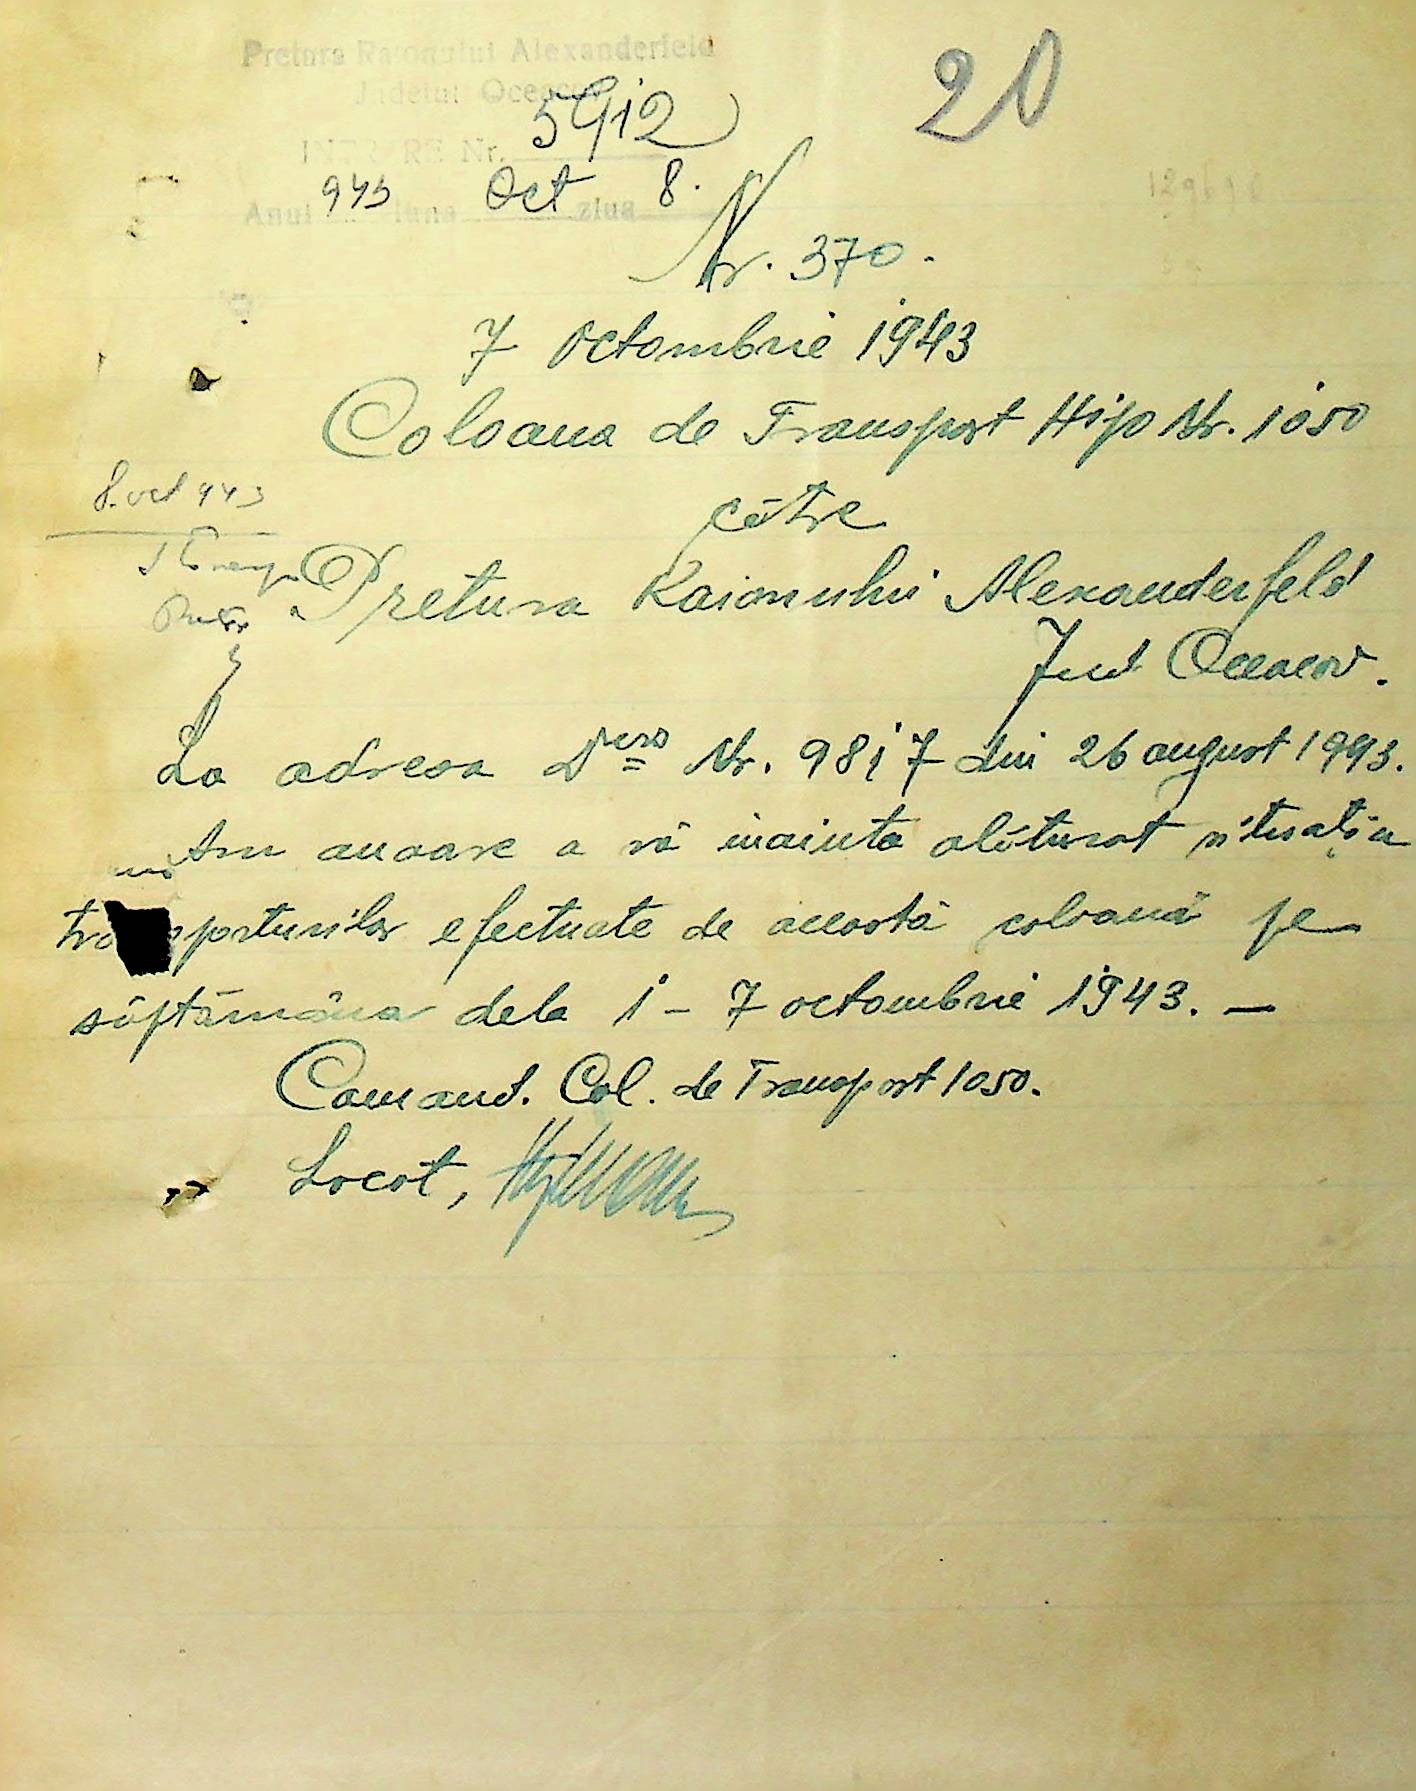 20
Pretura Raionului Alexanderfeld
Judetul Oceacov
INTRARE Nr. 5912
Anul 943 luna Oct ziua 8.
Nr. 370.
7 Octombrie 1943
Coloana de Transport Hipo Nr. 1050
către
Pretura Raionului Alexanderfeld
Jud Oceacov.
8. oct 943
La adresa Dvs Nr. 9817 din 26 august 1943.
Am onoare a vă inainta alăturat situația
tra sporturilor efectuate de această coloană pe
săptămâna dela 1 - 7 octombrie 1943. —
Comand. Col. de Transport 1050.
Locot,